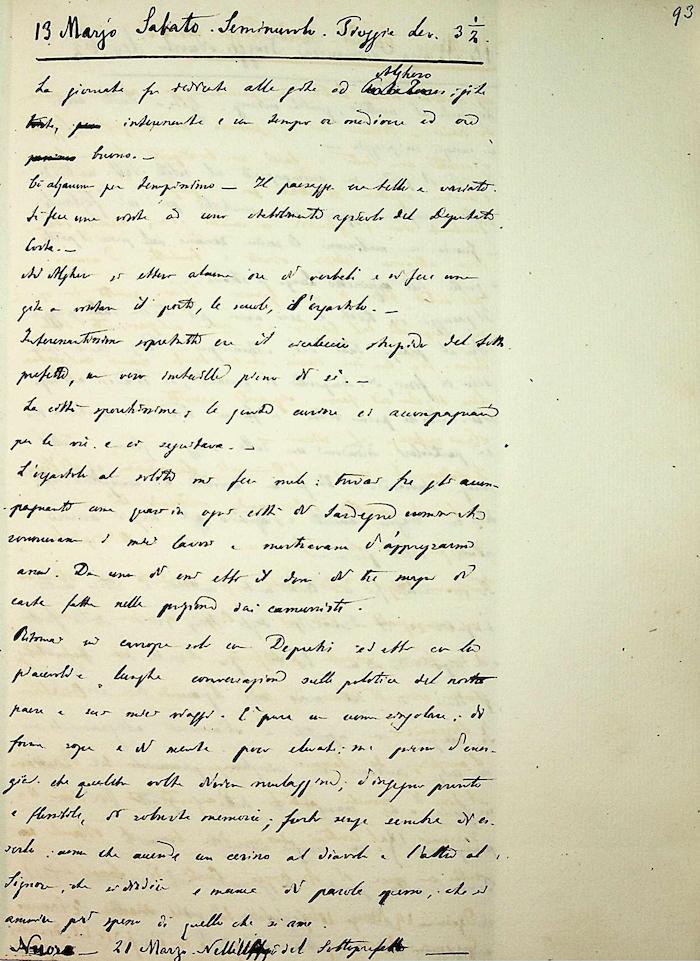 93
13 Marzo Sabato. Seminuvolo. Pioggia lev. 3 1/2.
Alghero
La giornata fu dedicata alla gita ad ; gita
interessante e con tempo or mediocre ed ora
buono. —
Ci alzammo per tempissimo — Il paesaggio era bello e variato.
Si fece una visita ad uno stabilimento agricolo del Deputato
Costa. —
Ad Alghero si ebbero alcune ore di e si fece una
gita a visitare il porto, le scuole, l'ergastolo. —
Interessantissimo soprattutto era il stupido del Sotto
prefetto, un vero imbecille pieno di sè. —
La città sporchissima; la gente curiosa ci accompagnava
per le vie e ci seguitava. —
L'ergastolo al solito mi fece male: trovai fra gli accom-
pagnanti come quasi in ogni città di Sardegna uomini che
conoscevano i miei lavori e mostravano d'apprezzarmi
assai. Da uno di essi ebbi il dono di tre mazzi di
carte fatte nelle prigioni dai camorristi.
Ritornai in carrozza solo con Depretis ed ebbi con lui
piacevoli e lunghe conversazioni sulla politica del nostro
paese e sui miei viaggi. È pure un uomo singolare; di
forma rozza e di mente poco elevata; ma pieno d'ener-
gia che qualche volta diviene ; d'ingegno pronto
e flessibile, di robusta memoria; furbo senza sembrar di es-
serlo: uomo che accende un cerino al diavolo e l'altro al
Signore, che si disdice e manca di parola spesso, che si
ammira più spesso di quello che si ami.
Nuoro — 21 Marzo. del Sottoprefetto —